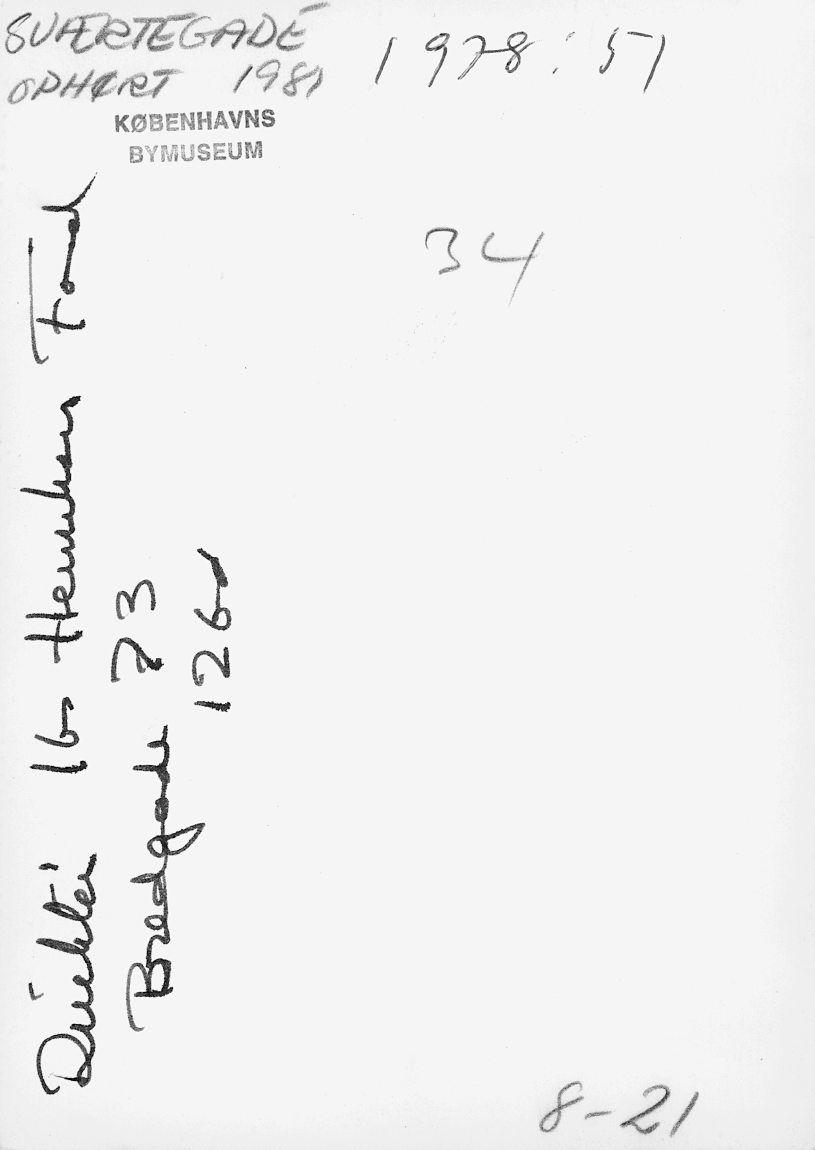 SVÆRTEGADE
OPHØRT 1981
1978:51
KØBENHAVNS
BYMUSEUM
34
Direktør Ib Henriksens Fond
Bredgade 73
1260
8-21